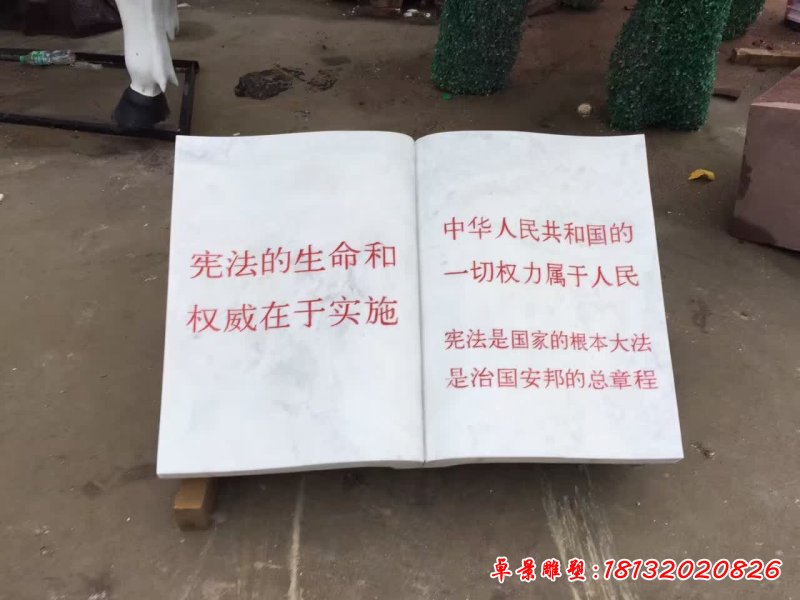 宪法的生命和
权威在于实施
中华人民共和国的
一切权力属于人民
宪法是国家的根本大法
是治国安邦的总章程
卓景雕塑:18132020826